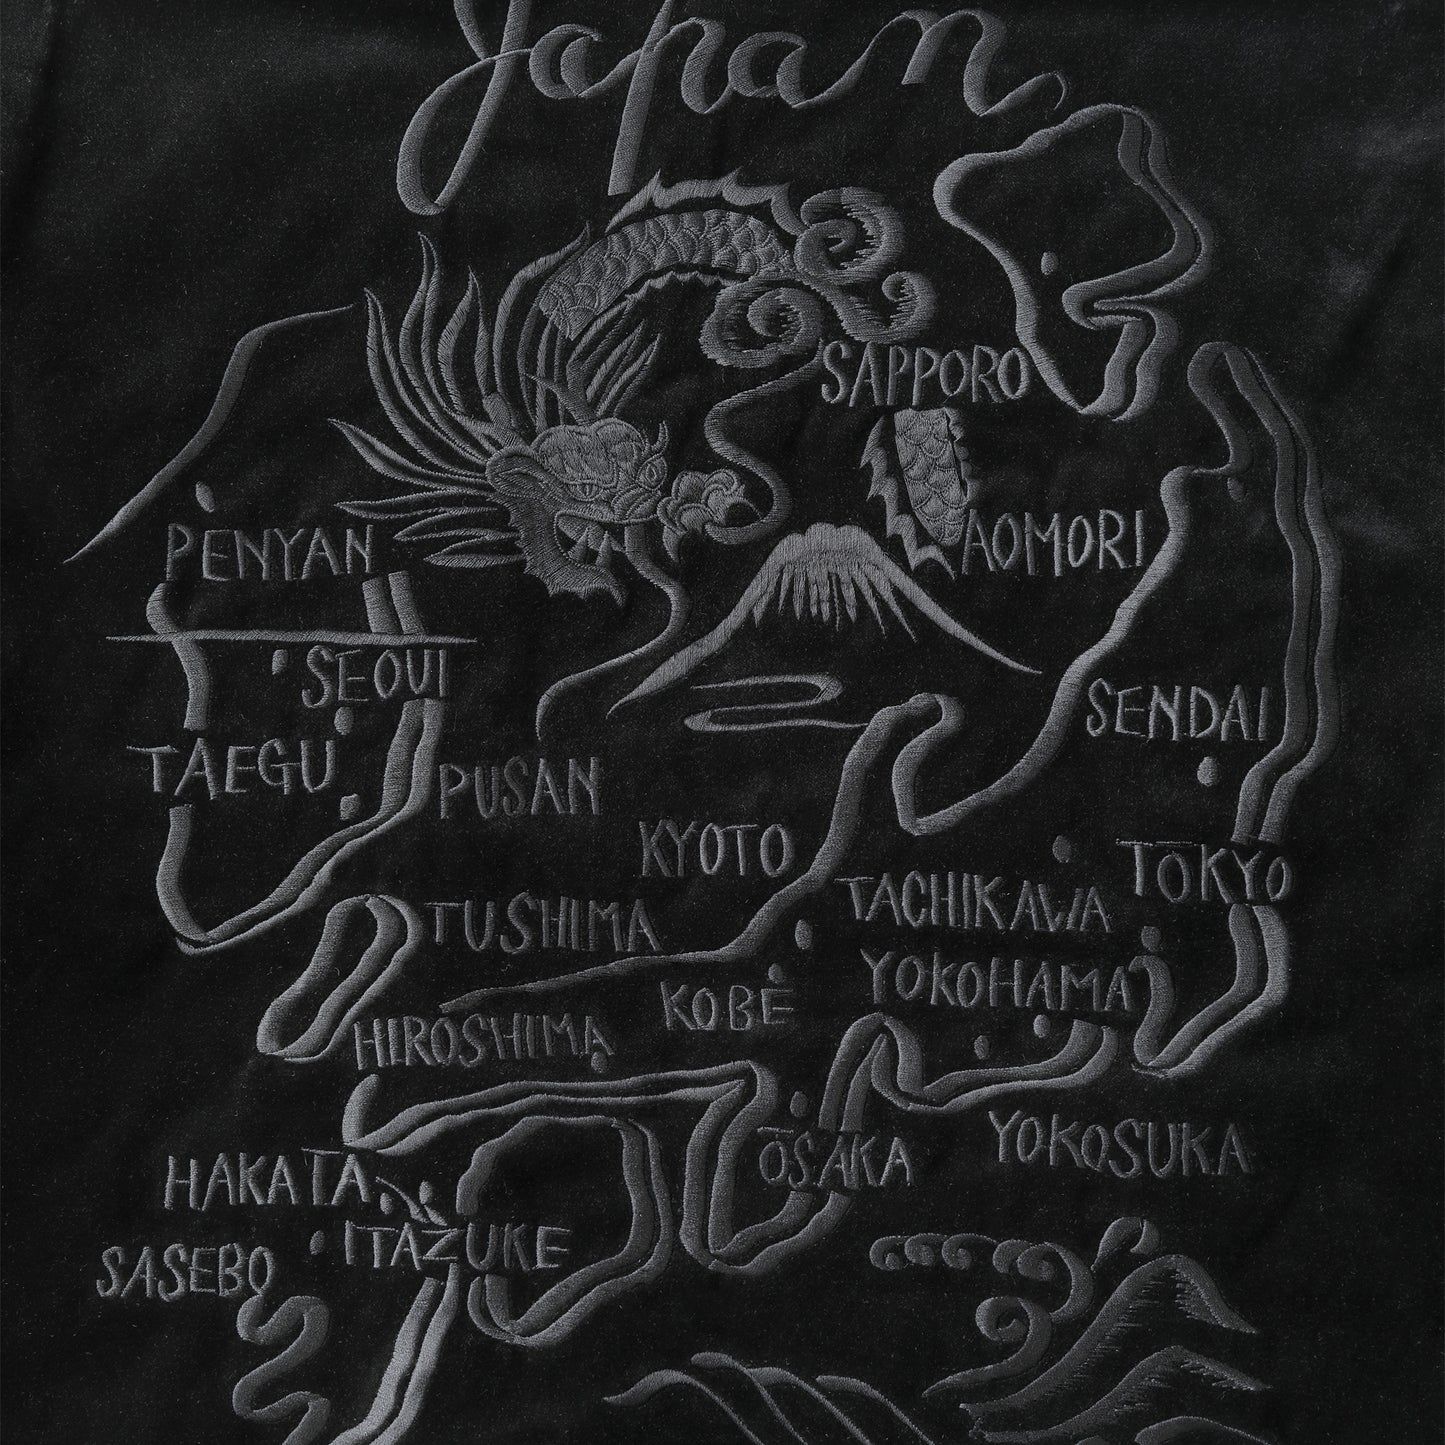 Japan
SAPPORO
PENYAN
AOMORI
SEOUl
SENDAI
TAEGU
PUSAN
KYOTO
TOKYO
TACHIKAWA
TUSHIMA
YOKOHAMA
KOBE
HIROSHIMA
YOKOSUKA
OSAKA
HAKATA
ITAZUKE
SASEBO